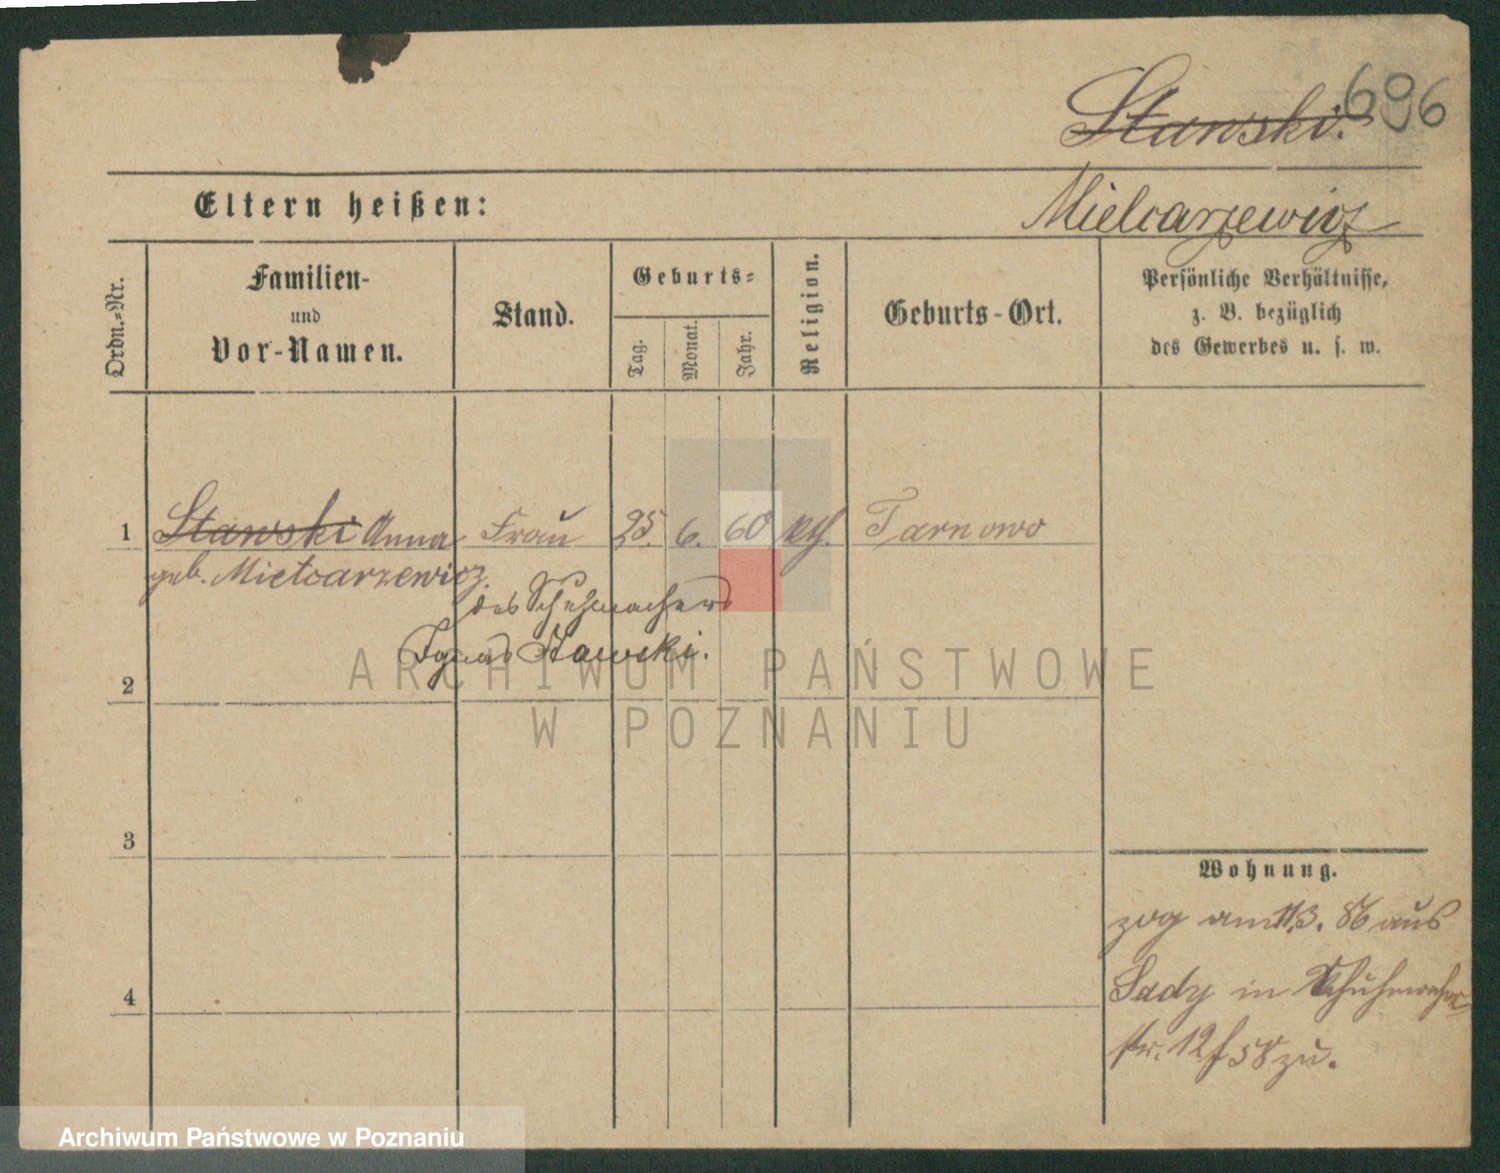 696
Stawski.
Eltern heißen:
Mielcarzewicz
Ordn.-Nr.
Familien-
und
Vor-Namen.
Stand.
Geburts-
Tag.
Monat.
Jahr.
Religion.
Geburts-Ort.
Persönliche Verhältnisse,
z. B. bezüglich
des Gewerbes u. s. w.
1 Stawski Anna Frau 25. 6. 60 kth. Tarnowo
geb. Mielcarzewicz.
des Schuhmachers
Ignas Stawski.
2
3
4
Wohnung.
zog am 11.3. 86 aus
Sady in Schuhmacher
str. 12 f 58 zu.
ARCHIWUM PAŃSTWOWE
W POZNANIU
Archiwum Państwowe w Poznaniu